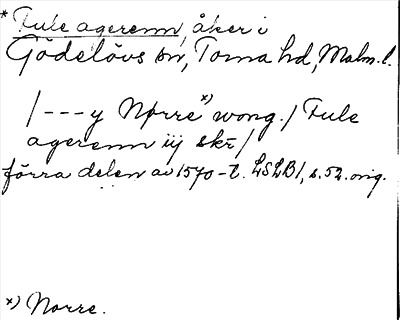 * Fule agerenn, åker i
Gödelövs sn, Torna hd, Malm. l.
/---y Nørre x) wong./ Fule
agerenn iij skr/
förra delen av 1570-t. LSLB1, s. 52. orig.
x) Norre.